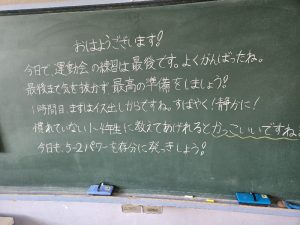 おはようございます!
今日で、運動会の練習は最後です。よくがんばったね。
最後まで気を抜かず、最高の準備をしましょう!
1時間目、まずはイス出しからですね。すばやく!静かに!
慣れていない1~4年生に教えてあげれるとかっこいいですね。
今日も、5-2パワーを存分に発っきしよう!